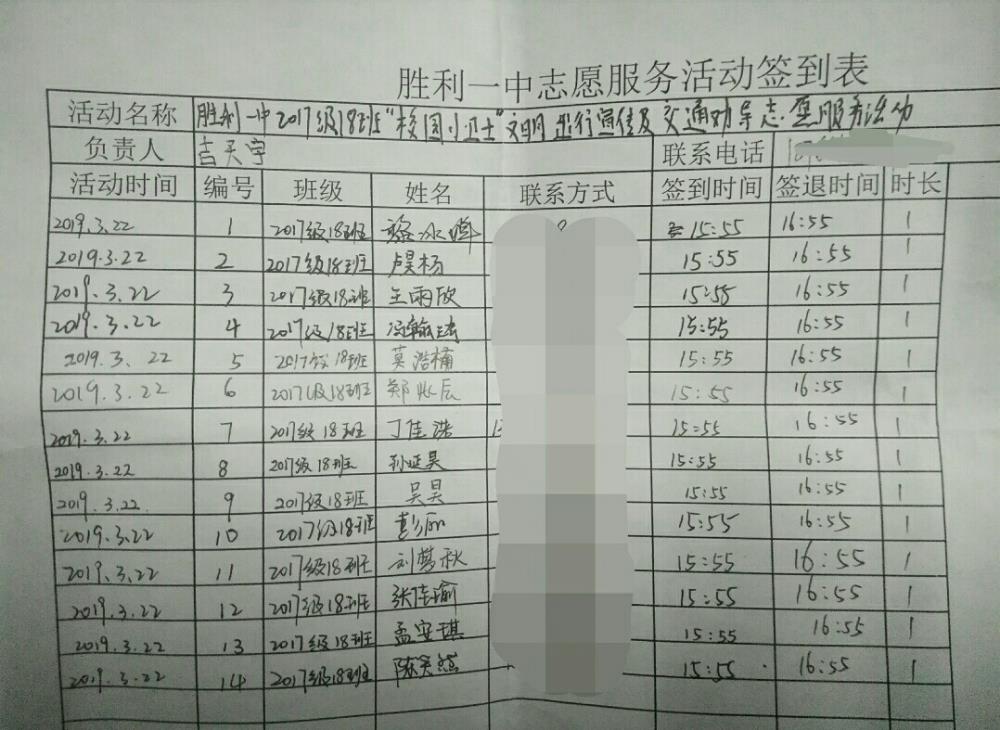 胜利一中志愿服务活动签到表
活动名称 胜利一中2017级18班"校园小卫士"文明出行宣传及交通劝导志愿服务活动
负责人 吉天宇 联系电话
活动时间 编号 班级 姓名 联系方式 签到时间 签退时间 时长
2019.3.22 1 2017级18班 15:55 16:55 1
2019.3.22 2 2017级18班 卢昊杨 15:55 16:55 1
2019.3.22 3 2017级18班 王雨欣 15:55 16:55 1
2019.3.22 4 2017级18班 冯翰 15:55 16:55 1
2019.3.22 5 2017级18班 莫浩楠 15:55 16:55 1
2019.3.22 6 2017级18班 郑 辰 15:55 16:55 1
2019.3.22 7 2017级18班 丁佳浩 15:55 16:55 1
2019.3.22 8 2017级18班 孙延昊 15:55 16:55 1
2019.3.22 9 2017级18班 吴昊 15:55 16:55 1
2019.3.22 10 2017级18班 彭丽 15:55 16:55 1
2019.3.22 11 2017级18班 刘梦秋 15:55 16:55 1
2019.3.22 12 2017级18班 张佳瑜 15:55 16:55 1
2019.3.22 13 2017级18班 孟安琪 15:55 16:55 1
2019.3.22 14 2017级18班 陈笑然 15:55 16:55 1